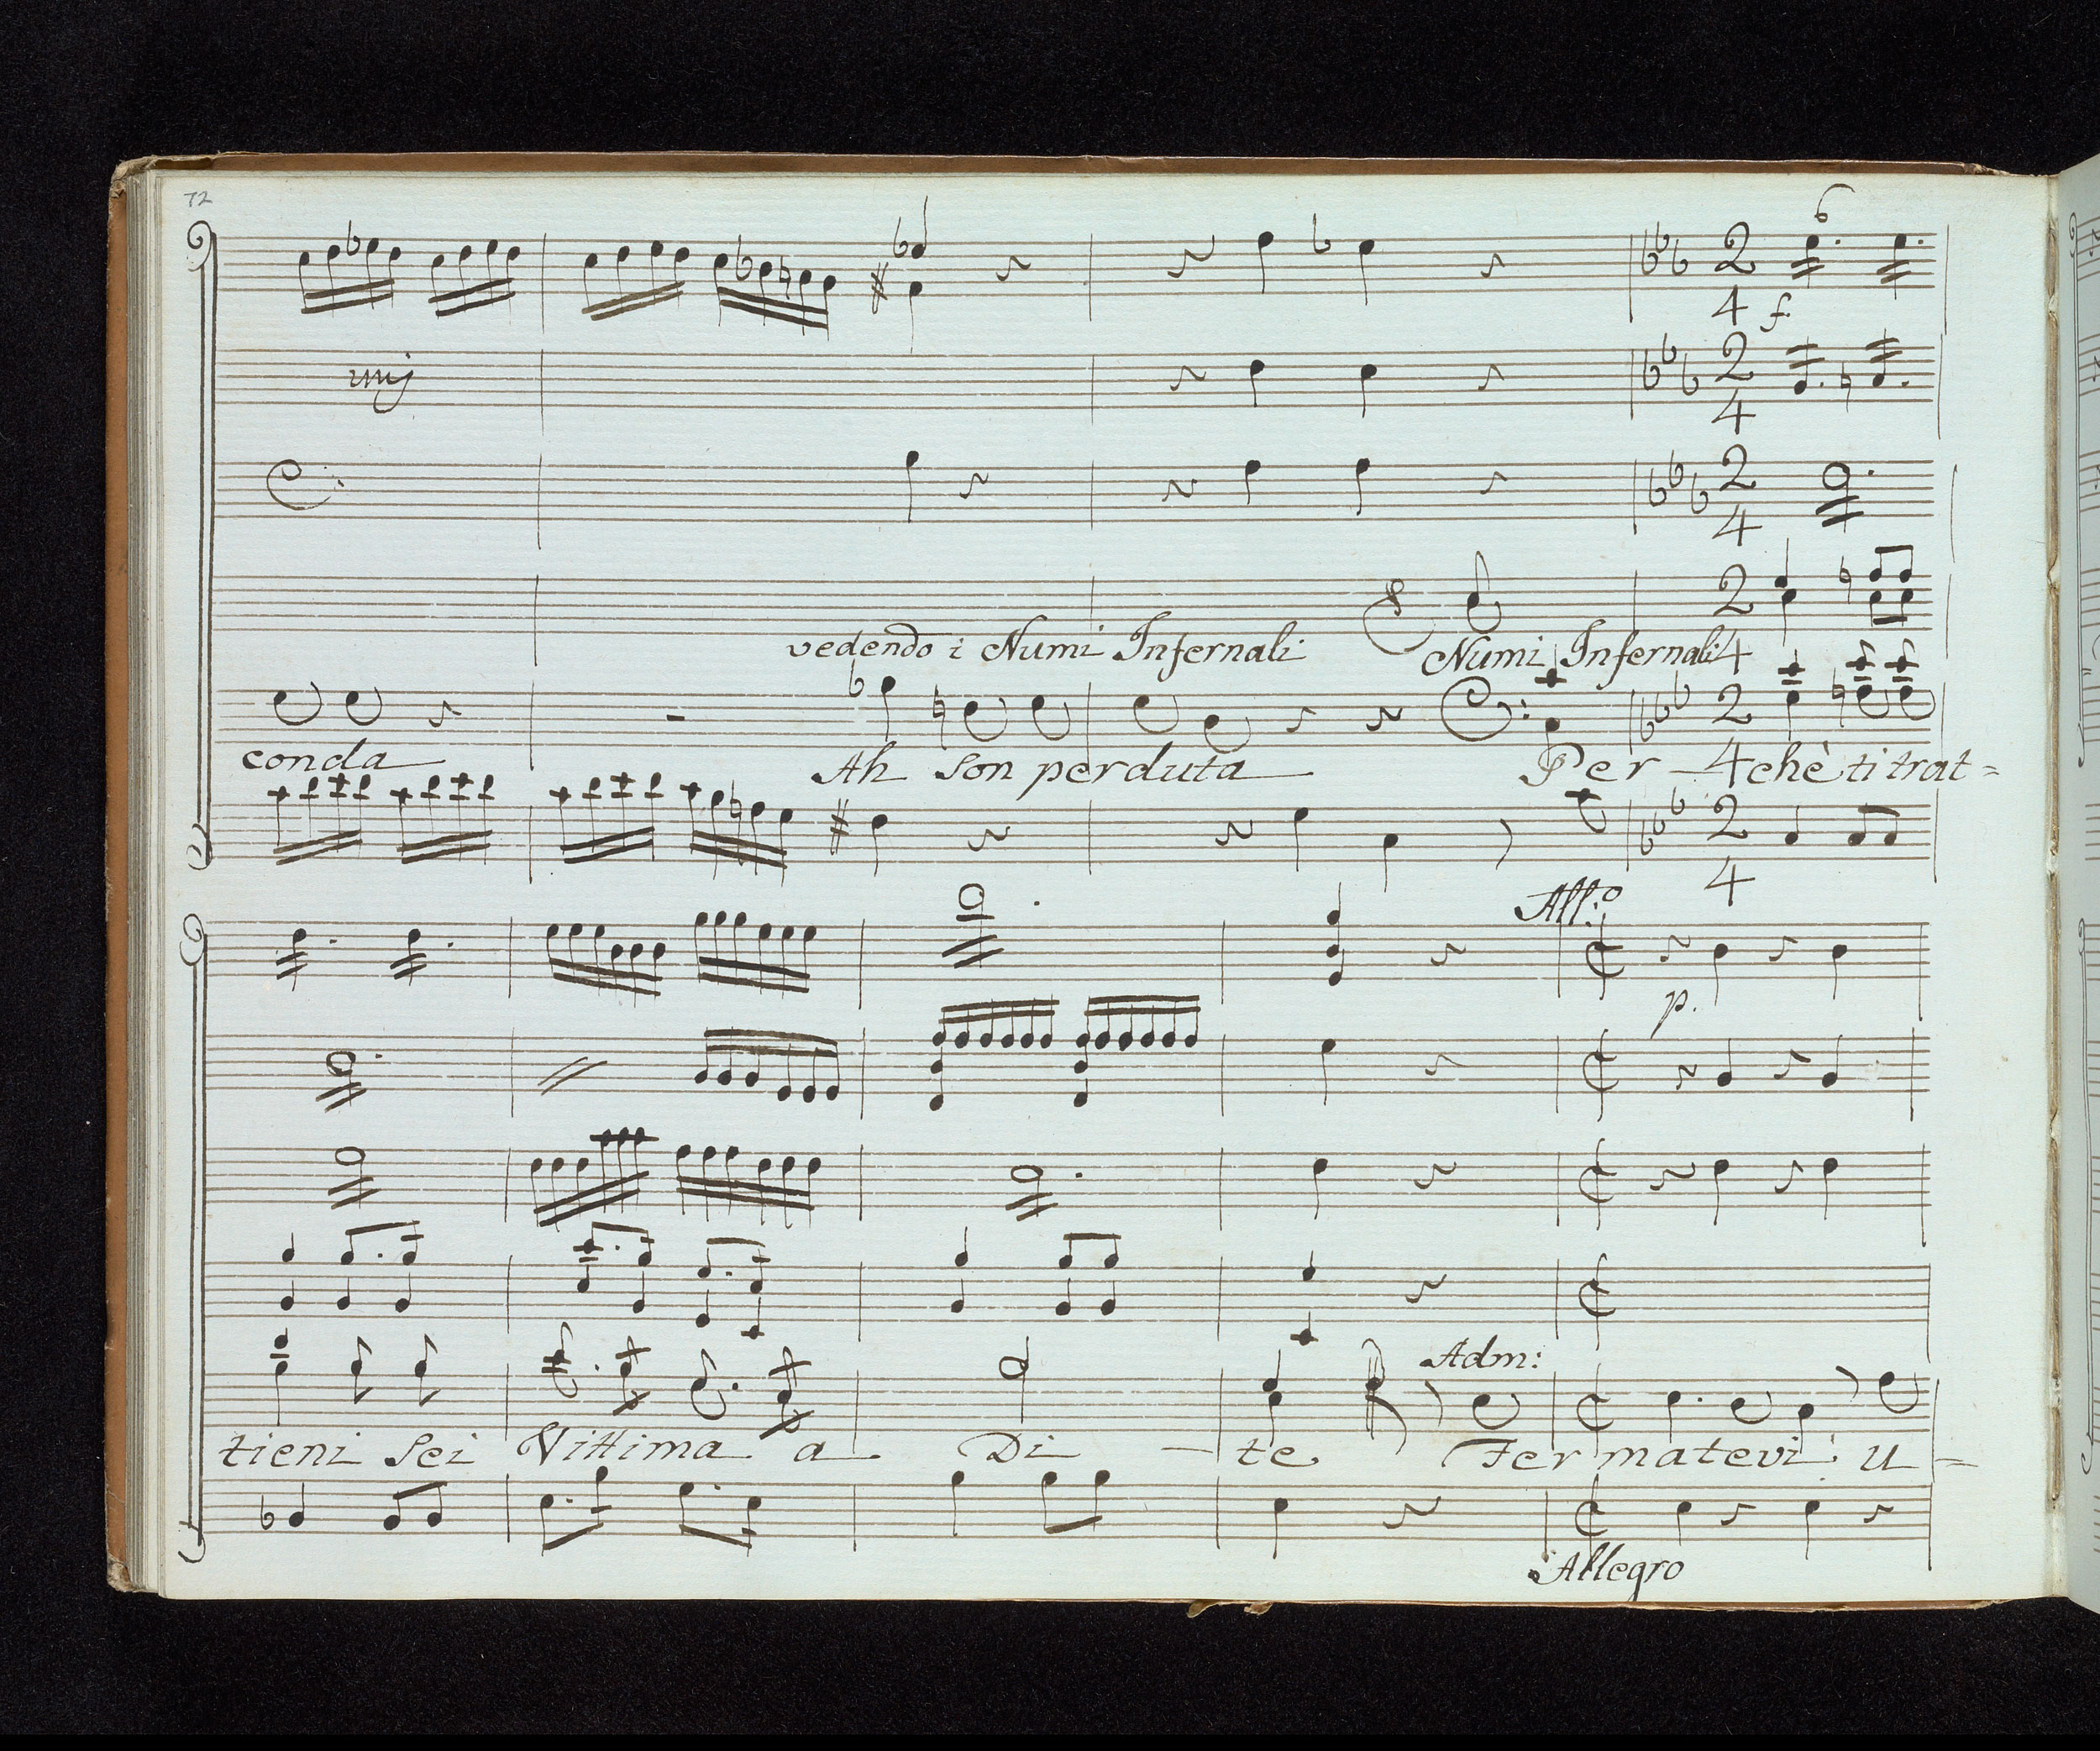 72
2
4
f
6
unis
2
4
2
4
2
4
vedendo i Numi Infernali Numi Infernali
2
4
conda Ah son perduta Per - chè ti trat =
2
4
All:o
p.
Adm:
tieni sei Vittima a Di - te Fermatevi U -
Allegro